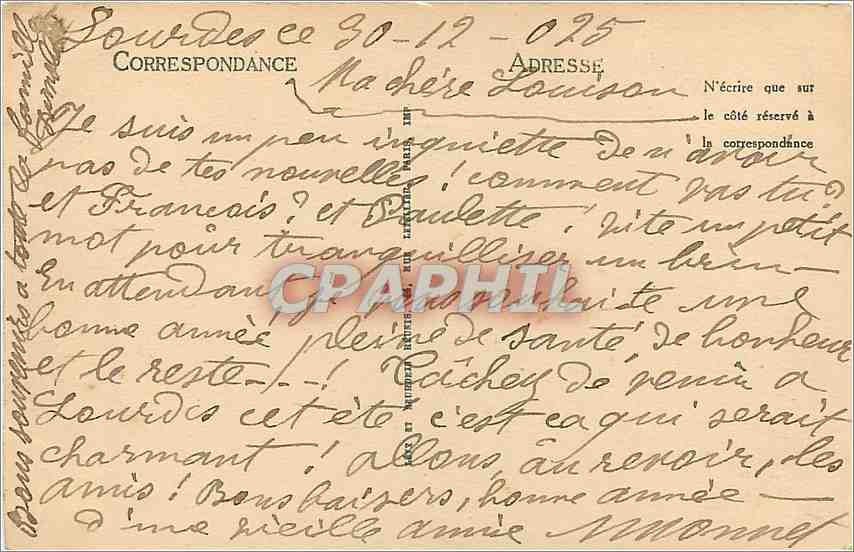 Lourdes ce 30-12-025
CORRESPONDANCE
ADRESSE
Ma chère Louison
N'écrire que sur
le côté réservé à
la correspondance
Je suis un peu inquiette de n'avoir
pas de tes nouvelles! comment vas tu?
et Francois? et Paulette! vite un petit
mot pour tranquilliser un brin —
En attendant je vous souhaite une
bonne année pleine de santé de bonheur
et le reste --- ! Tâchez de venir a
Lourdes cet été c'est ca qui serait
charmant! allons, au revoir, les
amis! Bons baisers, bonne année —
d'une vieille amie
Bons souvenirs a toute la famille
LÉVY ET NEURDEIN RÉUNIS, 44, RUE LETELLIER, PARIS, IMP.
CPAPHIL